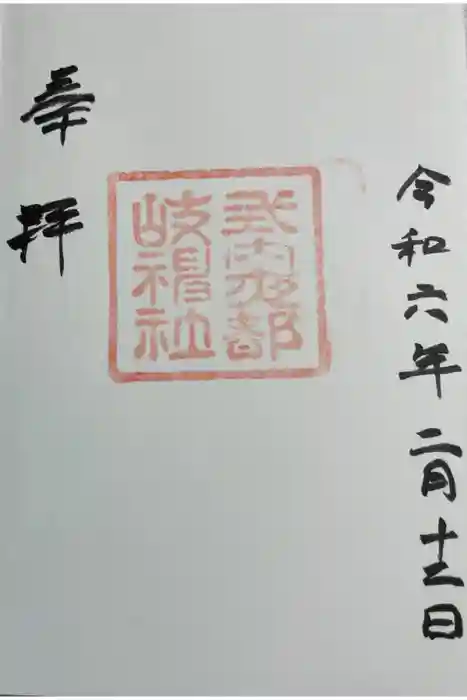 令和六年二月十二日
式内夜都
岐神社
奉拝